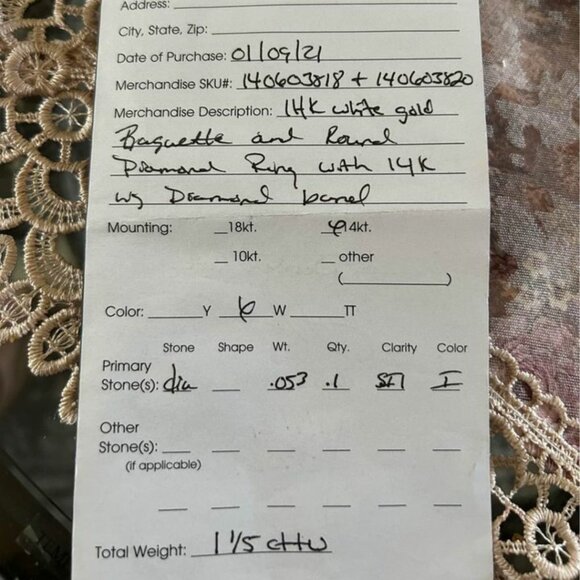 Address:
City, State, Zip:
Date of Purchase: 01/09/21
Merchandise SKU#: 140603818 + 140603820
Merchandise Description: 14K white gold
Baguette and Round
Diamond Ring with 14K
wg Diamond band
Mounting: 18kt. 14kt.
10kt. other
( )
Color: Y W TT
Stone Shape Wt. Qty. Clarity Color
Primary
Stone(s): dia .053 .1 SI1 I
Other
Stone(s):
(if applicable)
Total Weight: 1 1/5 cttw